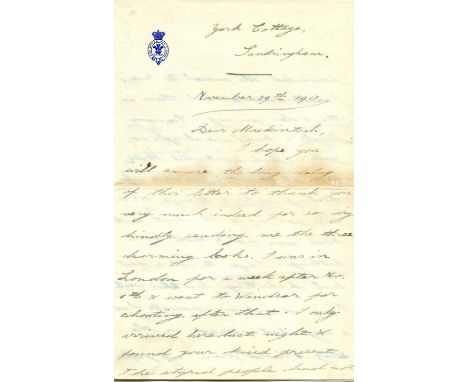 York Cottage,
Sandringham.
November 19th 1911
Dear Mackintosh,
I hope you
will excuse the long delay
of this letter to thank you
very much indeed for so very
kindly sending me the three
charming books. I was in
London for a week after Nov.
9th & went to Windsor for
shooting after that. I only
arrived here last night &
found your kind present.
The stupid people had not